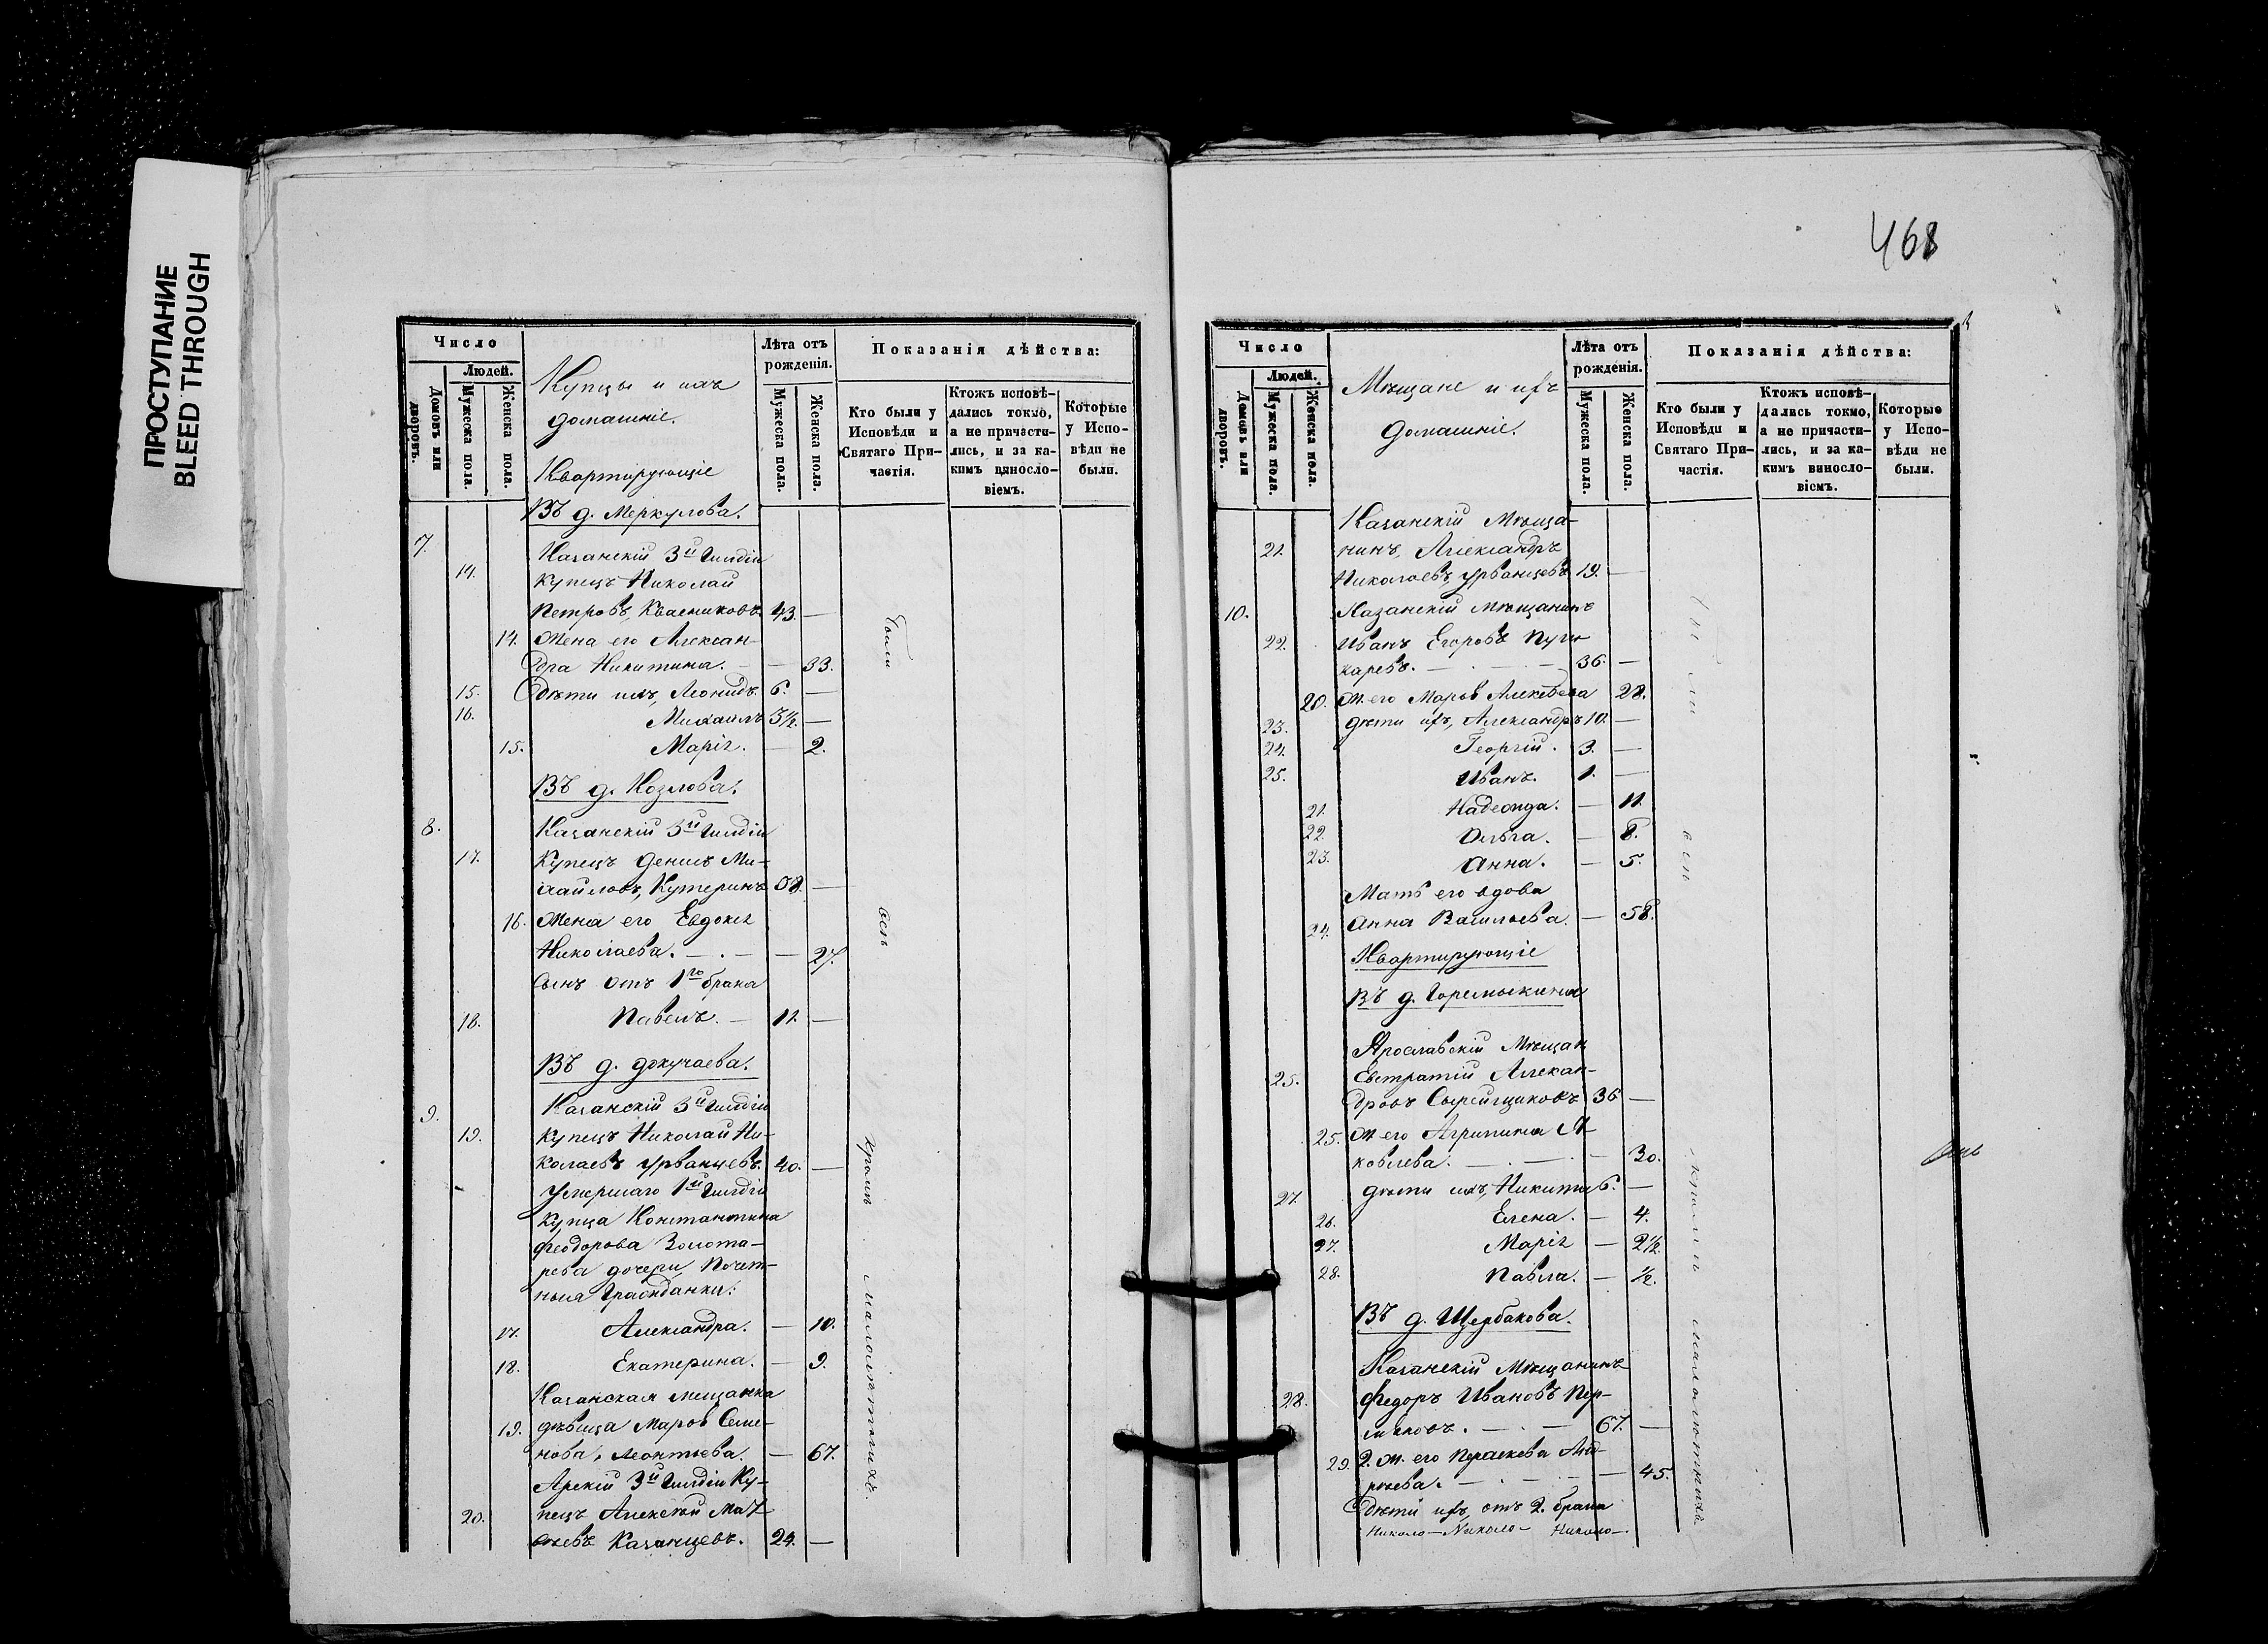 ПРОСТУПАНИЕ
BLEED THROUGH
468
Число
Людей.
Домовъ или дворовъ.
Мужеска пола.
Женска пола.
Купцы и ихъ
домашніе.
Квартирующіе
Лѣта отъ рожденія.
Мужеска пола.
Женска пола.
Показанія дѣйства:
Кто были у Исповѣди и Святаго Причастія.
Ктожъ исповѣдались токмо, а не причастились, и за какимъ винословіемъ.
Которые у Исповѣди не были.
Въ д. Меркулова.
7. Казанскій 3й Гильдіи
14. Купецъ Николай
Петровъ, Квасниковъ. 43. —
14. Жена его Алексан-
дра Никитина. — — 33.
15. Дѣти ихъ, Леонидъ. 6. —
16. Михаилъ 3½. —
15. Марія. — 2.
Въ д. Козлова.
8. Казанскій 3й Гильдіи
17. Купецъ Денисъ Ми-
хайловъ, Кутеринъ 58. —
16. Жена его Евдокія
Николаева. — . — — 27.
Сынъ отъ 1го брака
18. Павелъ. — 11. —
Въ д. Докучаева.
9. Казанскій 3й Гильдіи
19. Купецъ Николай Ни-
колаевъ Урванцевъ. 40. —
Умершаго 1й Гильдіи
Купца Константина
Феодорова Золота-
рева дочери Почет-
ныя Гражданки:
17. Александра. — 10.
18. Екатерина. — 9.
Казанская мещанка
19. дѣвица Марья Семе-
нова, Леонтьева. — 67.
Арскій 3й Гильдіи Ку-
20. пецъ Алексѣй Мат-
вѣевъ Казанцевъ. 24. —
Были всѣ кромѣ малолѣтнихъ.
Число
Людей.
Домовъ или дворовъ.
Мужеска пола.
Женска пола.
Мѣщане и ихъ
домашніе.
Лѣта отъ рожденія.
Мужеска пола.
Женска пола.
Показанія дѣйства:
Кто были у Исповѣди и Святаго Причастія.
Ктожъ исповѣдались токмо, а не причастились, и за какимъ винословіемъ.
Которые у Исповѣди не были.
Казанскій Мѣща-
21. нинъ, Александръ
Николаевъ, Урванцевъ 19. —
10. Казанскій мѣщанинъ
22. Иванъ Егоровъ
каревъ. — . — 36. —
20. Ж. его Марья Алексѣева 28.
23. дѣти ихъ, Александръ 10. —
24. Георгій. 3. —
25. Иванъ. 1. —
21. Надежда. — 11.
22. Ольга. — 8.
23. Анна. — 5.
Мать его вдова
24. Анна Васильева. — 58.
Квартирующіе
Въ д. Горемыкина
Ярославскій Мѣщан
25. Евстратій Алексан-
дровъ Сырейщиковъ 36 —
25. Ж. его Агрипина Я-
ковлева. — . — . — 30.
27. дѣти ихъ, Никита 6. —
26. Елена. — 4.
27. Марія — 2½.
28. Павла. — ½.
Въ д. Щербакова.
Казанскій Мѣщанинъ
28. Федоръ Ивановъ Пер-
мяковъ. — . — 67. —
29. 2. Ж. его Параскева Анд-
рѣева. — . — — 45.
Дѣти ихъ, отъ 2. брака
Николо — Николо — Николо —.
Были всѣ кромѣ малолѣтнихъ